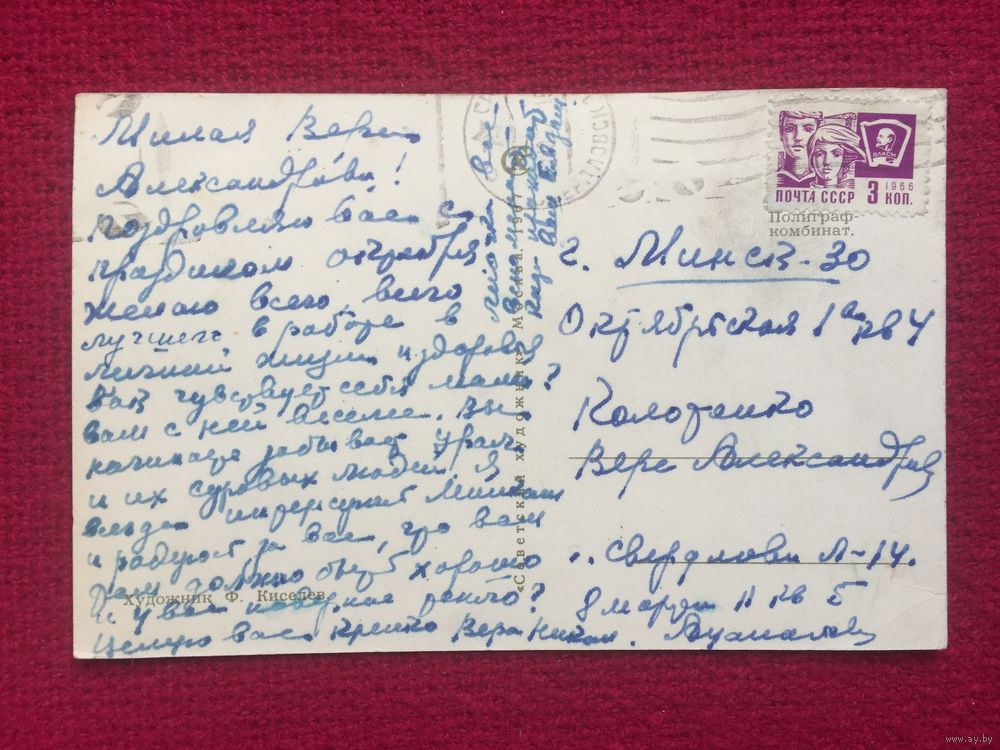 Милая Вера
Александровна!
Поздравляю вас с
праздником октября
желаю всего, всего
лучшего в работе в
личной жизни и здоровья
Как чувствует себя мама?
вам с ней веселее. Вы
начинаете забывать Урал
и их суровых людей я
везде интересуюсь Минском
и радуюсь за вас, что вам
там должно быть хорошо
и у вас наверное
Целую вас крепко Вера
Художник Ф. Киселев.
«Советский художник» Москва. 1967
СВЕРДЛОВСК
ВЛКСМ
1966
ПОЧТА СССР 3 КОП.
Полиграф
комбинат.
г. Минск-30
Октябрьская 1а кв 4
Колотенко
Вере Александровне
Свердловск Л-14.
8 марта